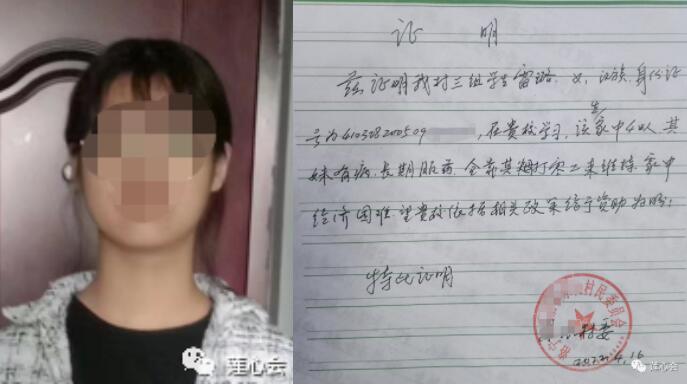 证 明
兹证明我村三组学生雷璐，女，汉族，身份证
号为410308200509，在贵校学习，该生家中4口人，其
妹有病，长期服药，全靠其打零工来维持，家中
经济困难，望贵校依据相关政策给予资助为盼！
特此证明
村民委员会
村委
4.16
莲心会
莲心会